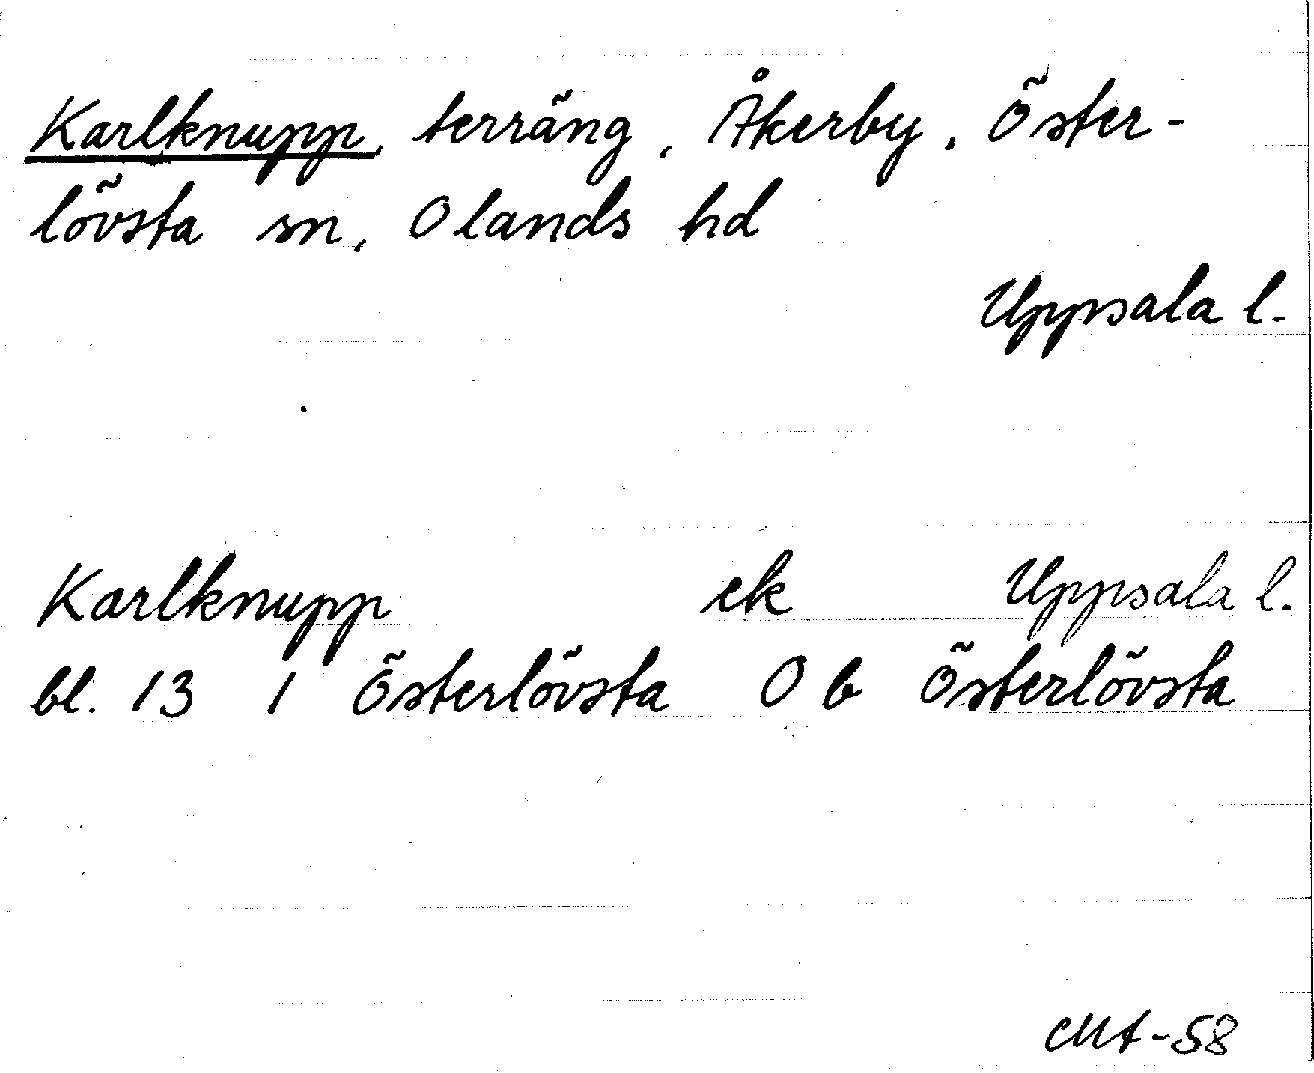 Karlknupp, terräng, Åkerby, Öster-
lövsta sn, Olands hd
Uppsala l.
Karlknupp ek Uppsala l.
bl. 13 1 Österlövsta Ob Österlövsta